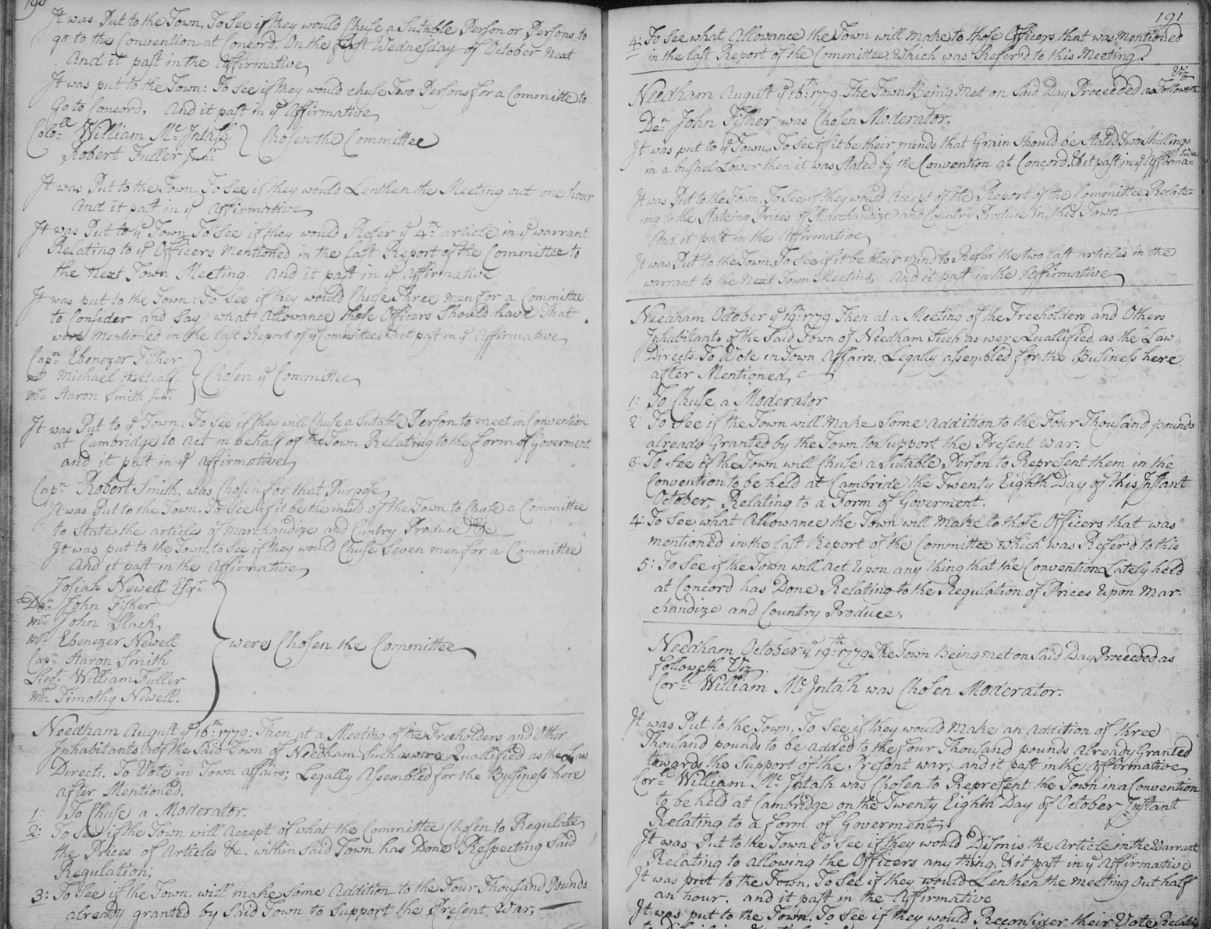 190
It was Put to the Town, To See if they would Chuse a Sutable Person or Persons to
go to the Convention at Concord, On the first Wednesday of October Next
And it past in the Affirmative
It was put to the Town: To See if they would chuse Two Persons for a Committe to
Go to Concord, And it past in ye Affirmative
Colo: William Mc Intash } Chosen the Committee
Robert Fuller Junr
It was Put to the Town, To See if they would Lenthen the Meeting out one hour
And it past in ye Affirmative
It was Put to ye Town To See if they would Refer ye 4th article in ye warrant
Relating to ye Officers mentioned in the last Report of the Committee to
the next Town Meeting. And it past in ye Affirmative
It was put to the Town: To See if they would Chuse Three men for a Committe
to Consider and Say what Allowance those Officers Should have that
were Mentioned in the last Report of ye Committee & it past in ye Affirmative
Capn Ebenezer Fisher
mr Michael Metcalf } Chosen ye Committee
mr Aaron Smith Junr
It was Put to ye Town, To See if they will Chuse a Sutable Person to meet in Convention
at Cambridge to act in behalf of the Town Relating to the form of Goverment
and it past in ye Affirmative
Capn Robert Smith, was Chosen for that Purpose
It was Put to the Town, To See if it be the mind of the Town to Chuse a Committee
to State the articles of Marchandize and Cuntry Produce &c
It was put to the Town, to See if they would Chuse Seven men for a Committee
And it past in the Affirmative
Josiah Newell Esqr
Dn: John Fisher
mr John Slack
mr Ebenezer Newell } were Chosen the Committee
Capn Aaron Smith
Lieut William Fuller
mr Timothy Newell.
Needham August ye 16th: 1779: Then at a Meeting of the Freeholders and Other
Inhabitants of the Said Town of Needham Such as were Quallified as the Law
Directs, To Vote in Town affairs; Legally Asembled for the Business here
after Mentioned,
1: To Chuse a Moderator.
2: To See if the Town will Accept of what the Committee Chosen to Regulate
the Prices of Articles &c. within Said Town has Done Respecting Said
Regulation,
3: To See if the Town, will make Some Addition to the Four Thousand Pounds
already granted by Said Town to Support the Present War.
191
4: To See what Allowance the Town will make to those Officers that was Mentioned
in the last Report of the Committee, Which was Refer'd to this Meeting.
Needham August ye 16th: 1779 The Town Being Met on Said Day Proceeded as Followeth
Viz
Dea John Fisher was Chosen Moderator.
It was put to ye Town, To See if it be their minds that Grain Should be Stated Two Shillings
in a bushel Lower then it was Stated by the Convention at Concord, & it past in ye Affirma=
tive
It was Put to the Town, To See if they would Accept of the Report of the Committee Relate=
ing to the Stateing Prices of Marchandize and Cuntry Produce in this Town
And it past in the Affirmative
It was Put to the Town, To See if it be their mind to Refer the two last articles in the
warrant to the Next Town Meeting, And it past in the Affirmative
Needham October ye 19th: 1779 Then at a Meeting of the Freeholders and Others
Inhabitants of the Said Town of Needham Such as were Quallified as the Law
Directs, To Vote in Town Affairs, Legally assembled for the Business here
after Mentioned,
1: To Chuse a Moderator
2: To See if the Town will Make Some Addition to the Four Thousand pounds
already Granted by the Town to Support the Present War.
3: To See if the Town will Chuse a Sutable Person to Represent them in the
Convention to be held at Cambride the Twenty Eighth Day of this Instant
October, Relating to a Form of Goverment.
4: To See what Allowance the Town will Make to those Officers that was
mentioned in the last Report of the Committee which was Refer'd to this
5: To See if the Town will Act upon any thing that the Convention Lately held
at Concord has Done Relating to the Regulation of Prices upon Mar-
chandize and Country Produce,
Needham October ye 19th: 1779 The Town Being met on Said Day Proceeded as
Followeth Viz
Corll William Mc Intash was Chosen Moderator.
It was Put to the Town, To See if they would Make an Addition of three
Thousand pounds to be added to the four Thousand pounds Already Granted
towards the Support of the Present war, and it past in the Affirmative
Corll William Mc Intash was Chosen to Represent the Town in a Convention
to be held at Cambridge on the Twenty Eighth Day of October Instant
Relating to a form of Goverment,
It was Put to the Town To See if they would Dismis the Article in the Warrant
Relating to allowing the Officers any thing, & it past in ye Affirmative
It was put to the Town, To See if they would Lenthen the meeting Out half
an hour. and it past in the Affirmative
It was put to the Town: To See if they would Reconsider their Vote Relating